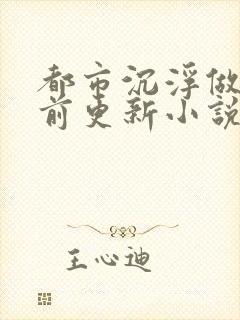 都市沉浮做
前更新小說
王心迪